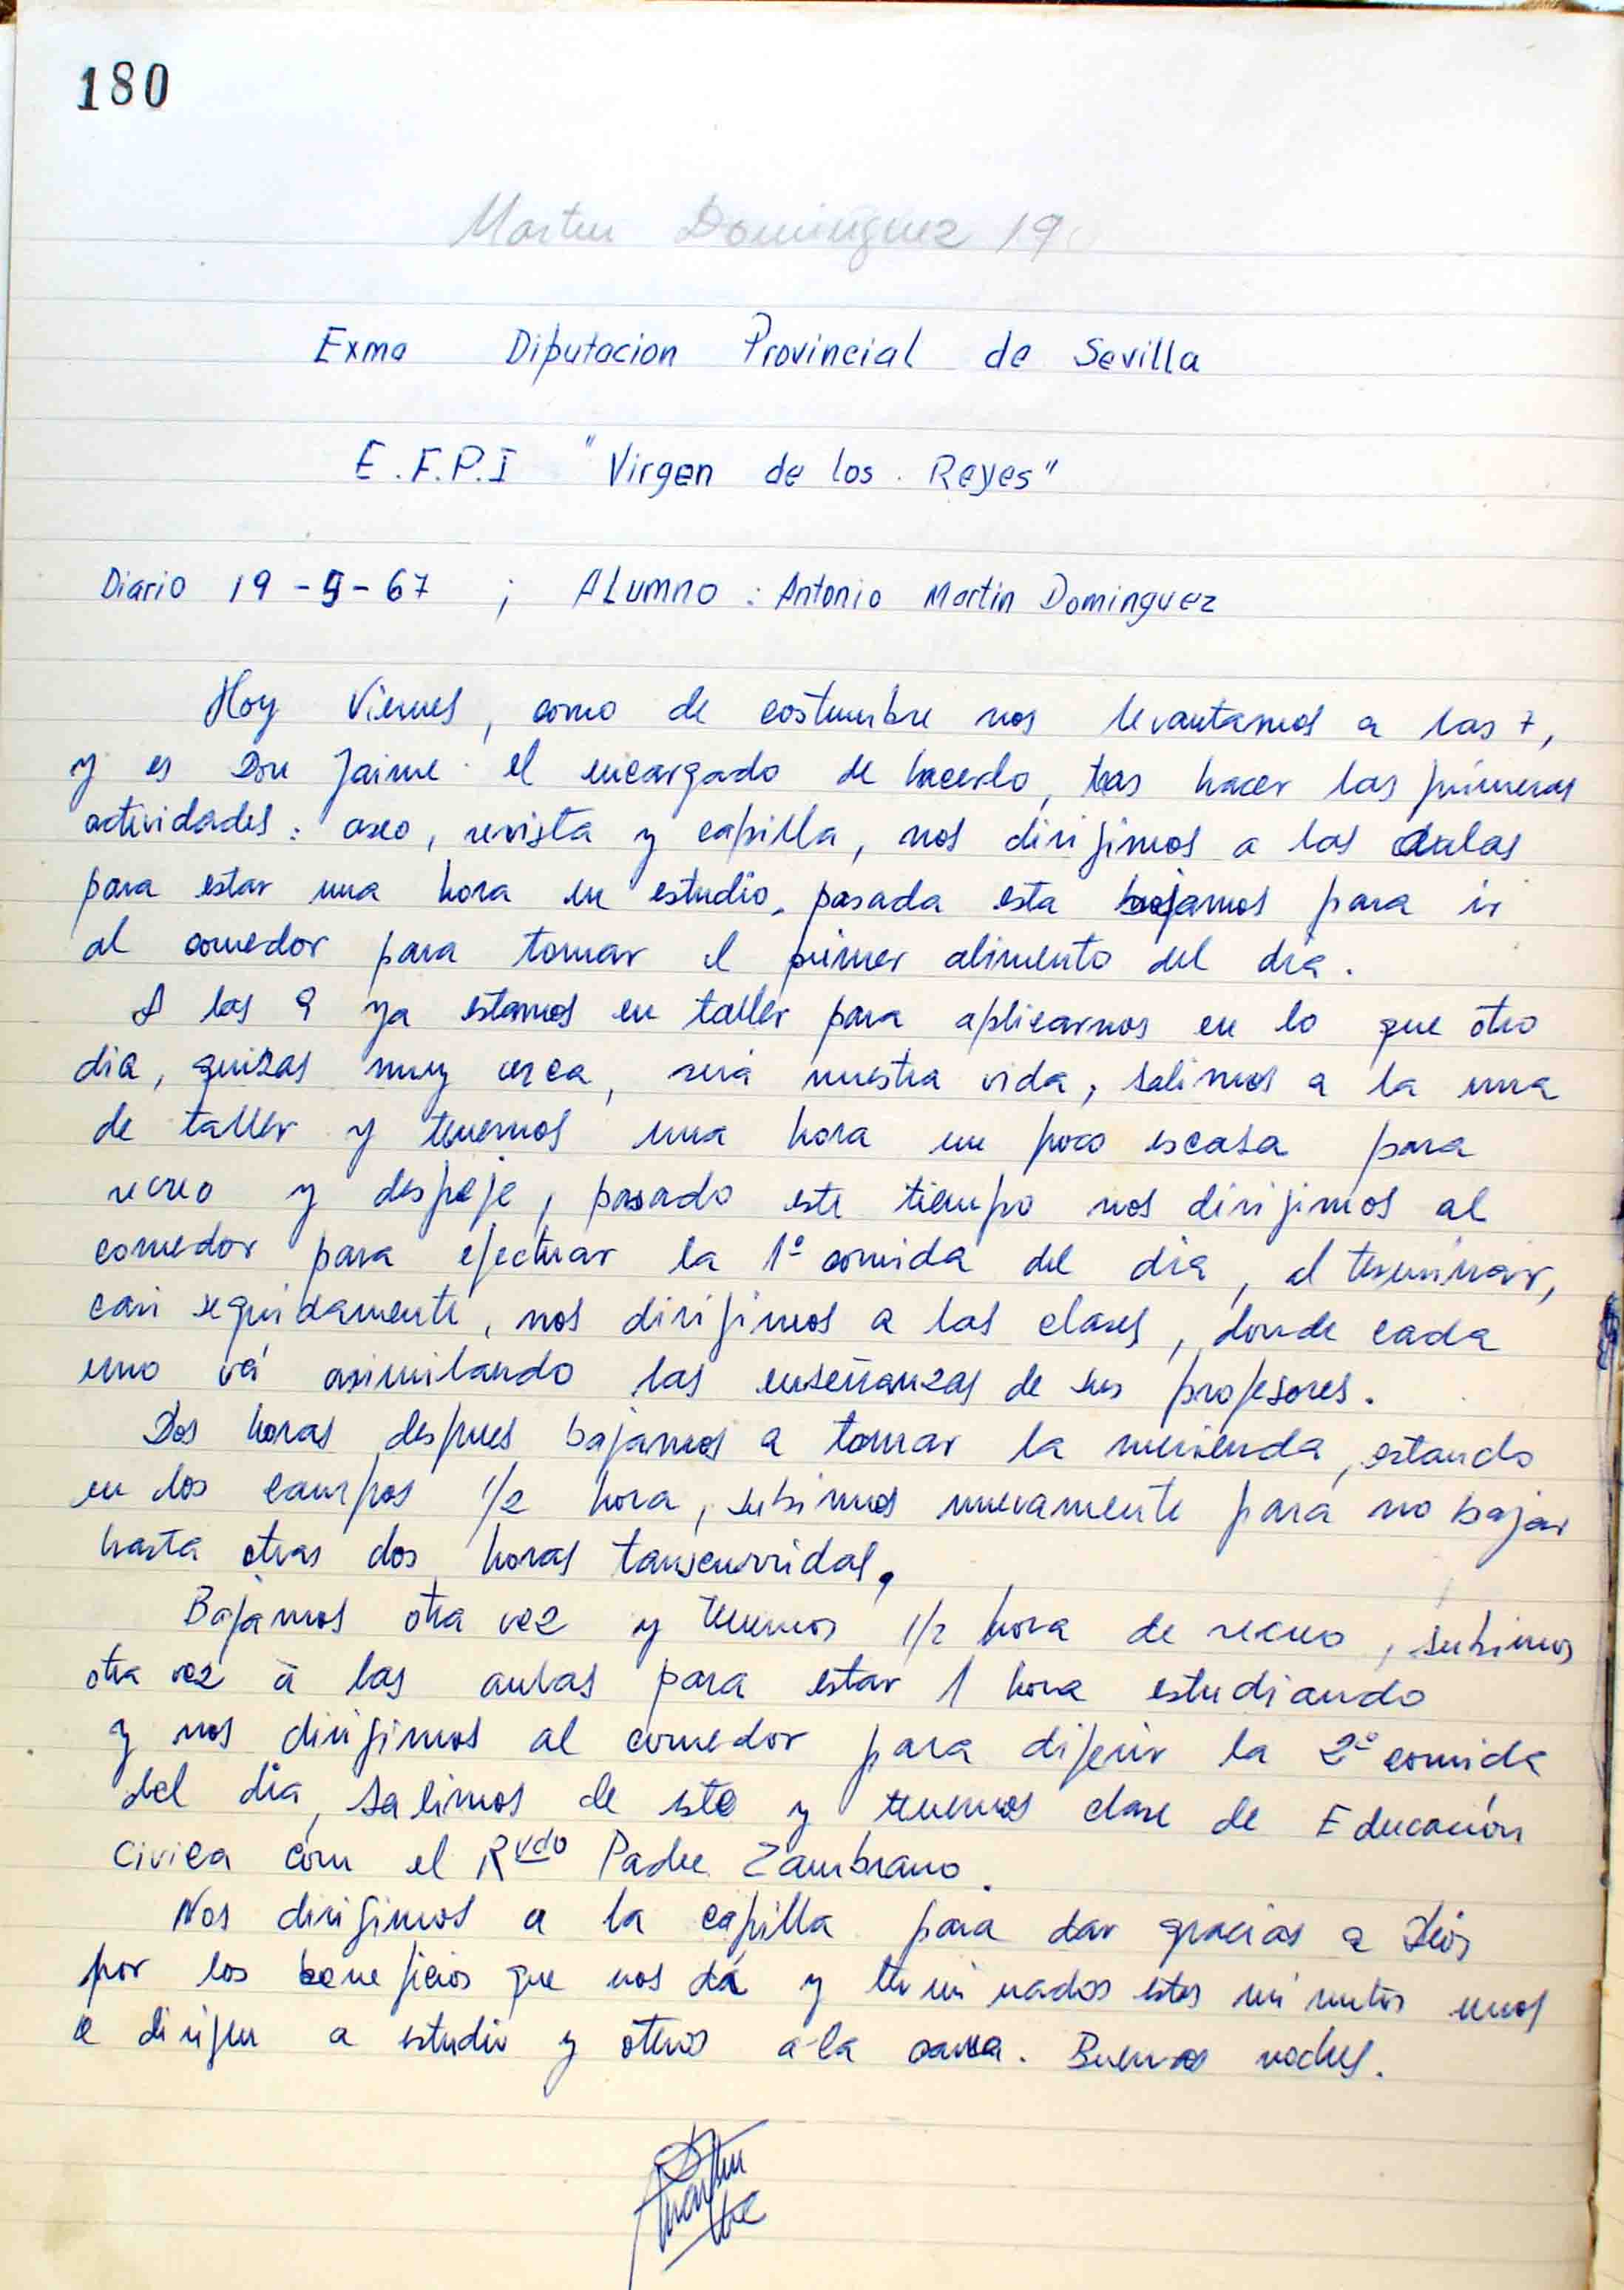 180
Martin Dominguez 19
Exma Diputacion Provincial de Sevilla
E.F.P.I "Virgen de los Reyes"
Diario 19-5-67 ; ALumno : Antonio Martin Dominguez
Hoy Viernes, como de costumbre nos levantamos a las 7,
y es Don Jaime el encargado de hacerlo, tras hacer las primeras
actividades: aseo, revista y capilla, nos dirijimos a las aulas
para estar una hora en estudio, pasada esta bajamos para ir
al comedor para tomar el primer alimento del dia.
A las 9 ya estamos en taller para aplicarnos en lo que otro
dia, quizas muy cerca, será nuestra vida, salimos a la una
de taller y tenemos una hora un poco escasa para
recreo y despeje, pasado este tiempo nos dirijimos al
comedor para efectuar la 1º comida del dia, al terminar,
casi seguidamente, nos dirijimos a las clases, donde cada
uno vá asimilando las enseñanzas de sus profesores.
Dos horas despues bajamos a tomar la merienda, estando
en los campos 1/2 hora, subimos nuevamente para no bajar
hasta otras dos horas tanscurridas.
Bajamos otra vez y tenemos 1/2 hora de recreo, subimos
otra vez a las aulas para estar 1 hora estudiando
y nos dirijimos al comedor para dijerir la 2º comida
del dia, salimos de este y tenemos clase de Educación
Civica con el Rvdo Padre Zambrano.
Nos dirijimos a la capilla para dar gracias a Dios
por los beneficios que nos dá y terminados estos minutos unos
se dirijen a estudio y otros a la cama. Buenas noches.